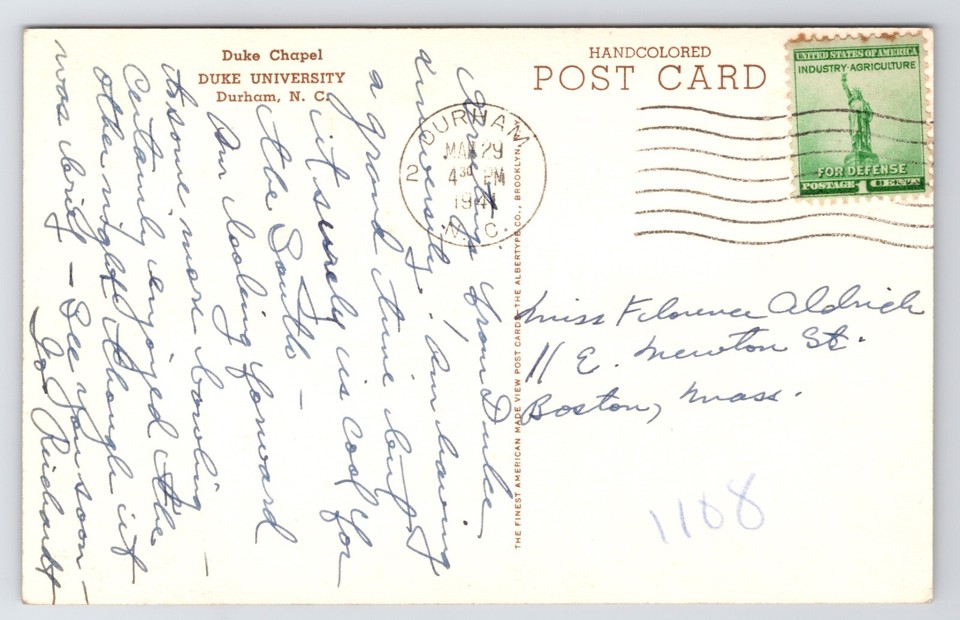 Duke Chapel
DUKE UNIVERSITY
Durham, N. C.
HANDCOLORED
POST CARD
UNITED STATES OF AMERICA
INDUSTRY·AGRICULTURE
FOR DEFENSE
POSTAGE 1 CENT
DURHAM
MAR 29
2 4 30 PM
1941
N.C.
THE FINEST AMERICAN MADE VIEW POST CARDS—THE ALBERTYPE CO., BROOKLYN,
Greetings from Duke
University. Am having
a grand time, but
it surely is cool for
the South —
Am looking forward
to some more bowling —
Certainly enjoyed the
other night though it
was brief — See you soon —
Jo Reichardt
Miss Florence Aldrich
11 E. Newton St.
Boston, Mass.
1108